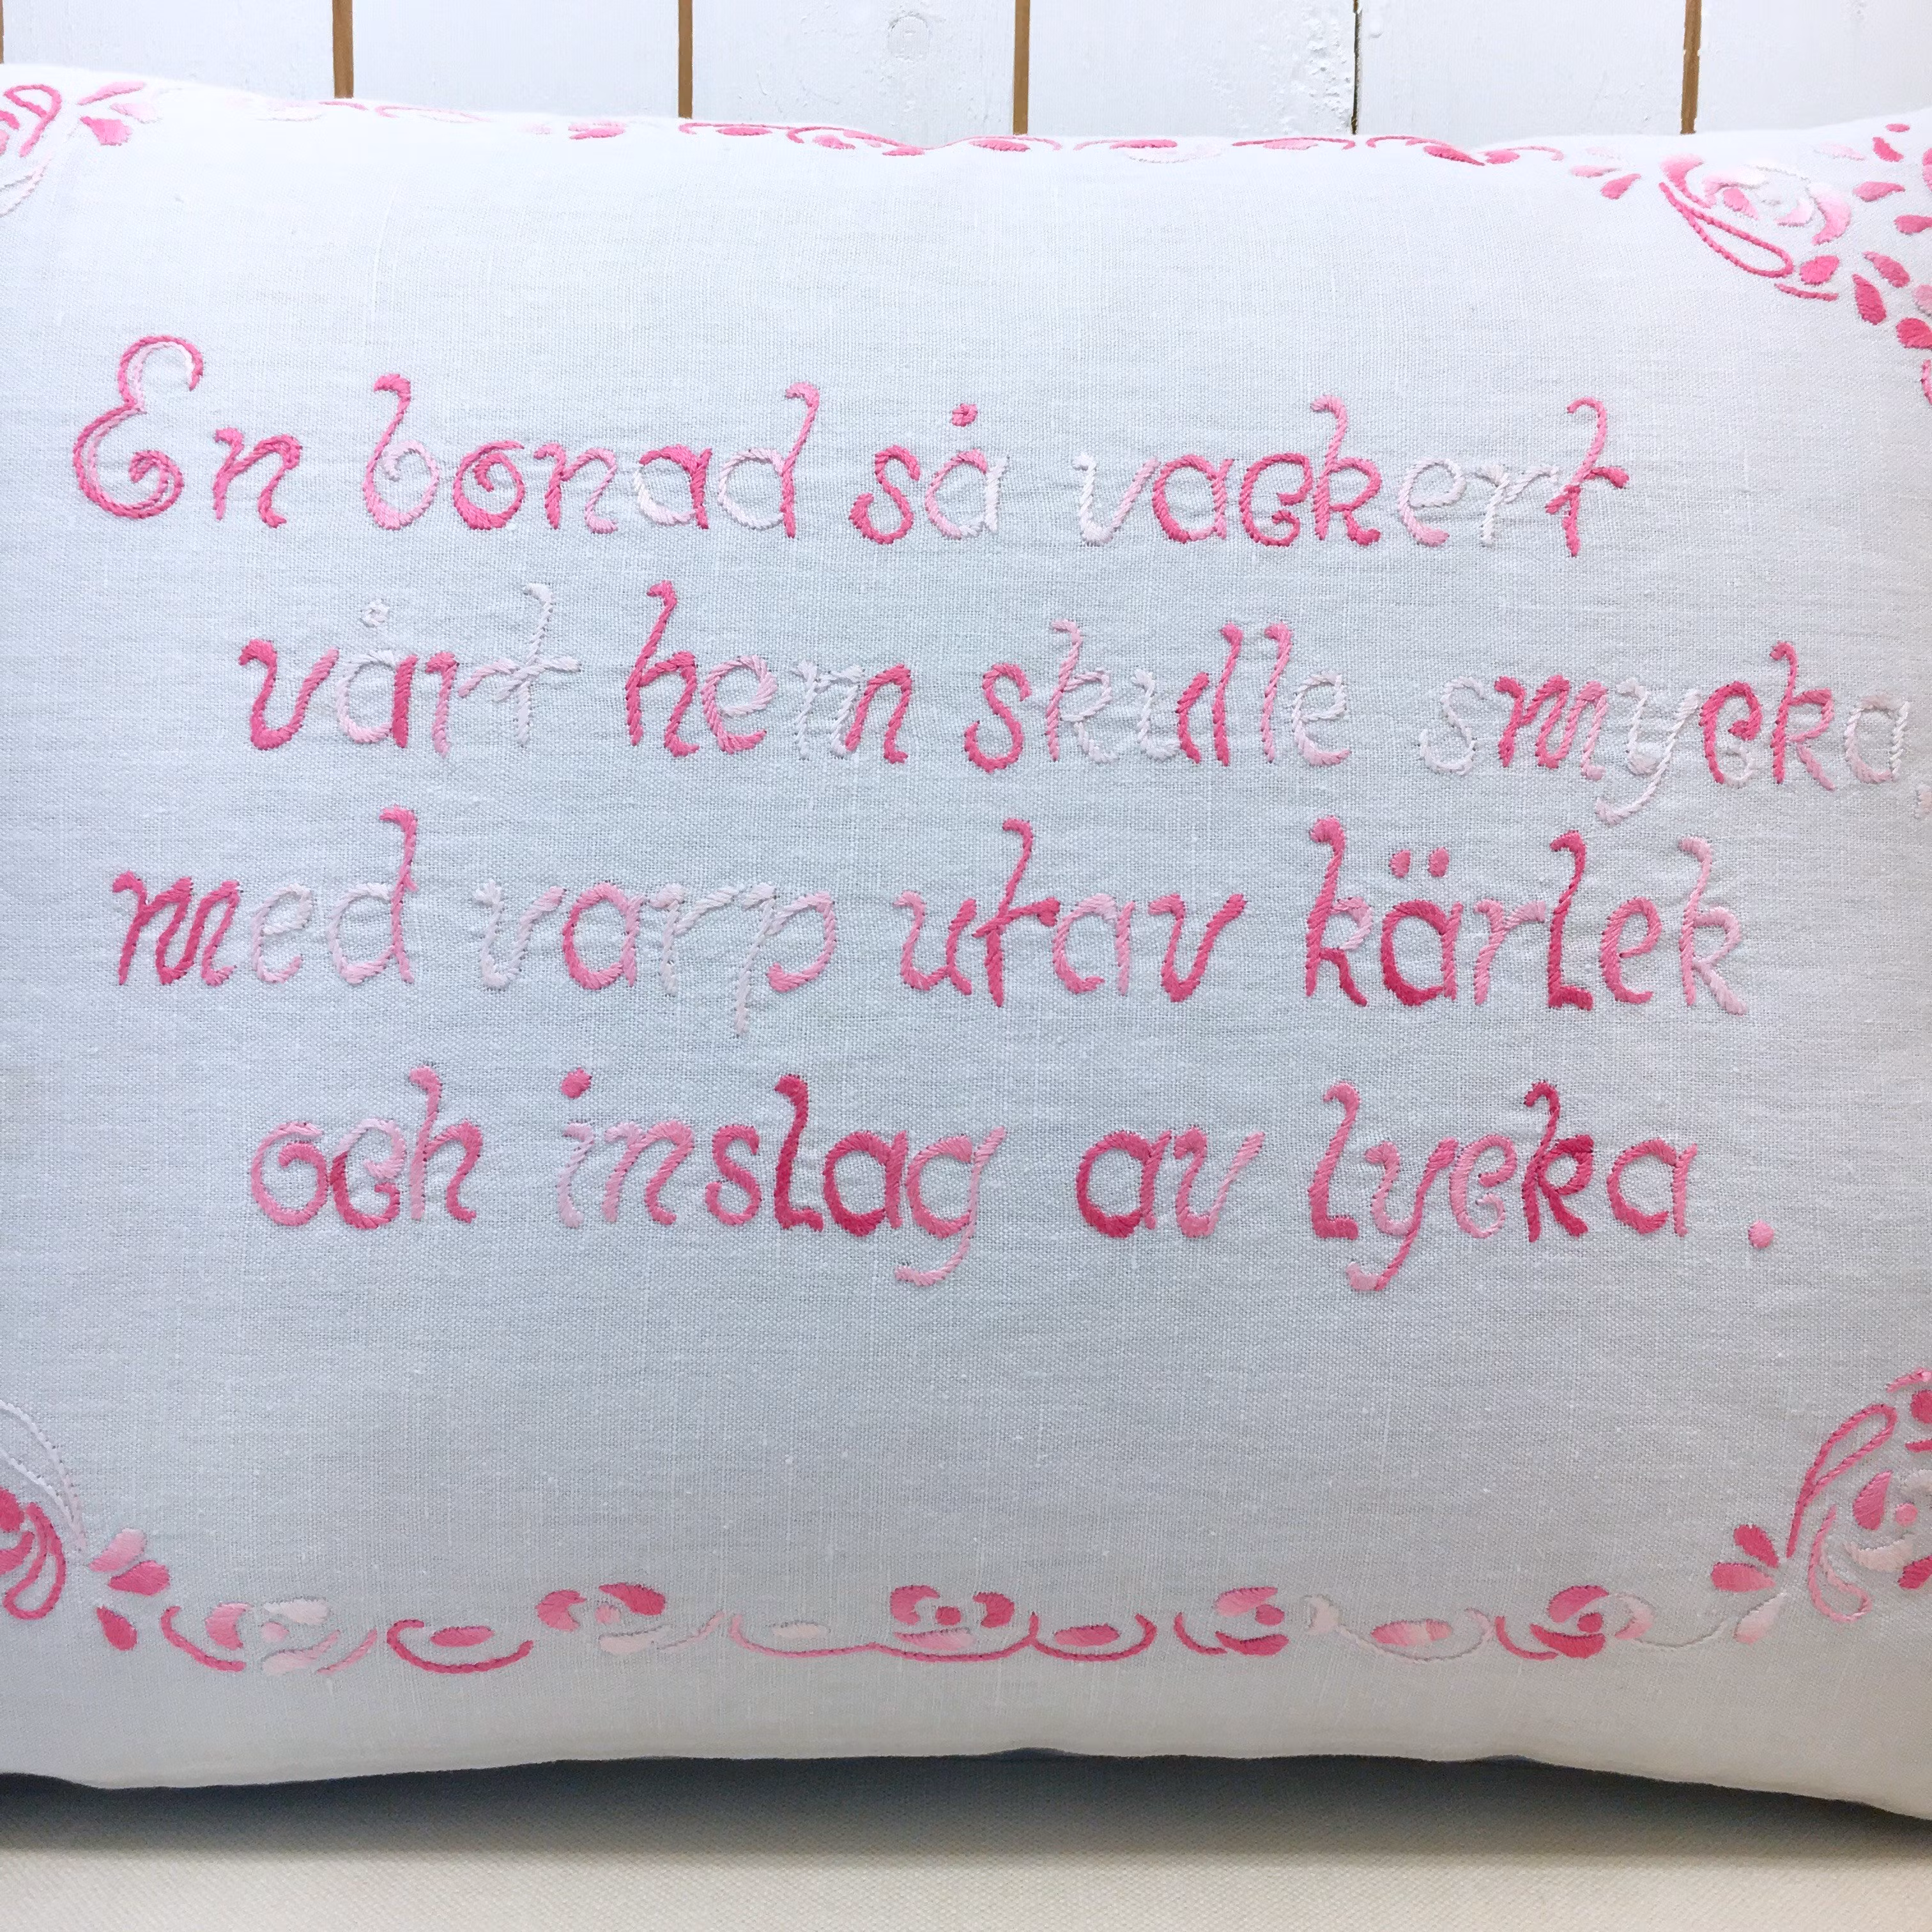 En bonad så vackert
vårt hem skulle smycka,
med varp utav kärlek
och inslag av lycka.